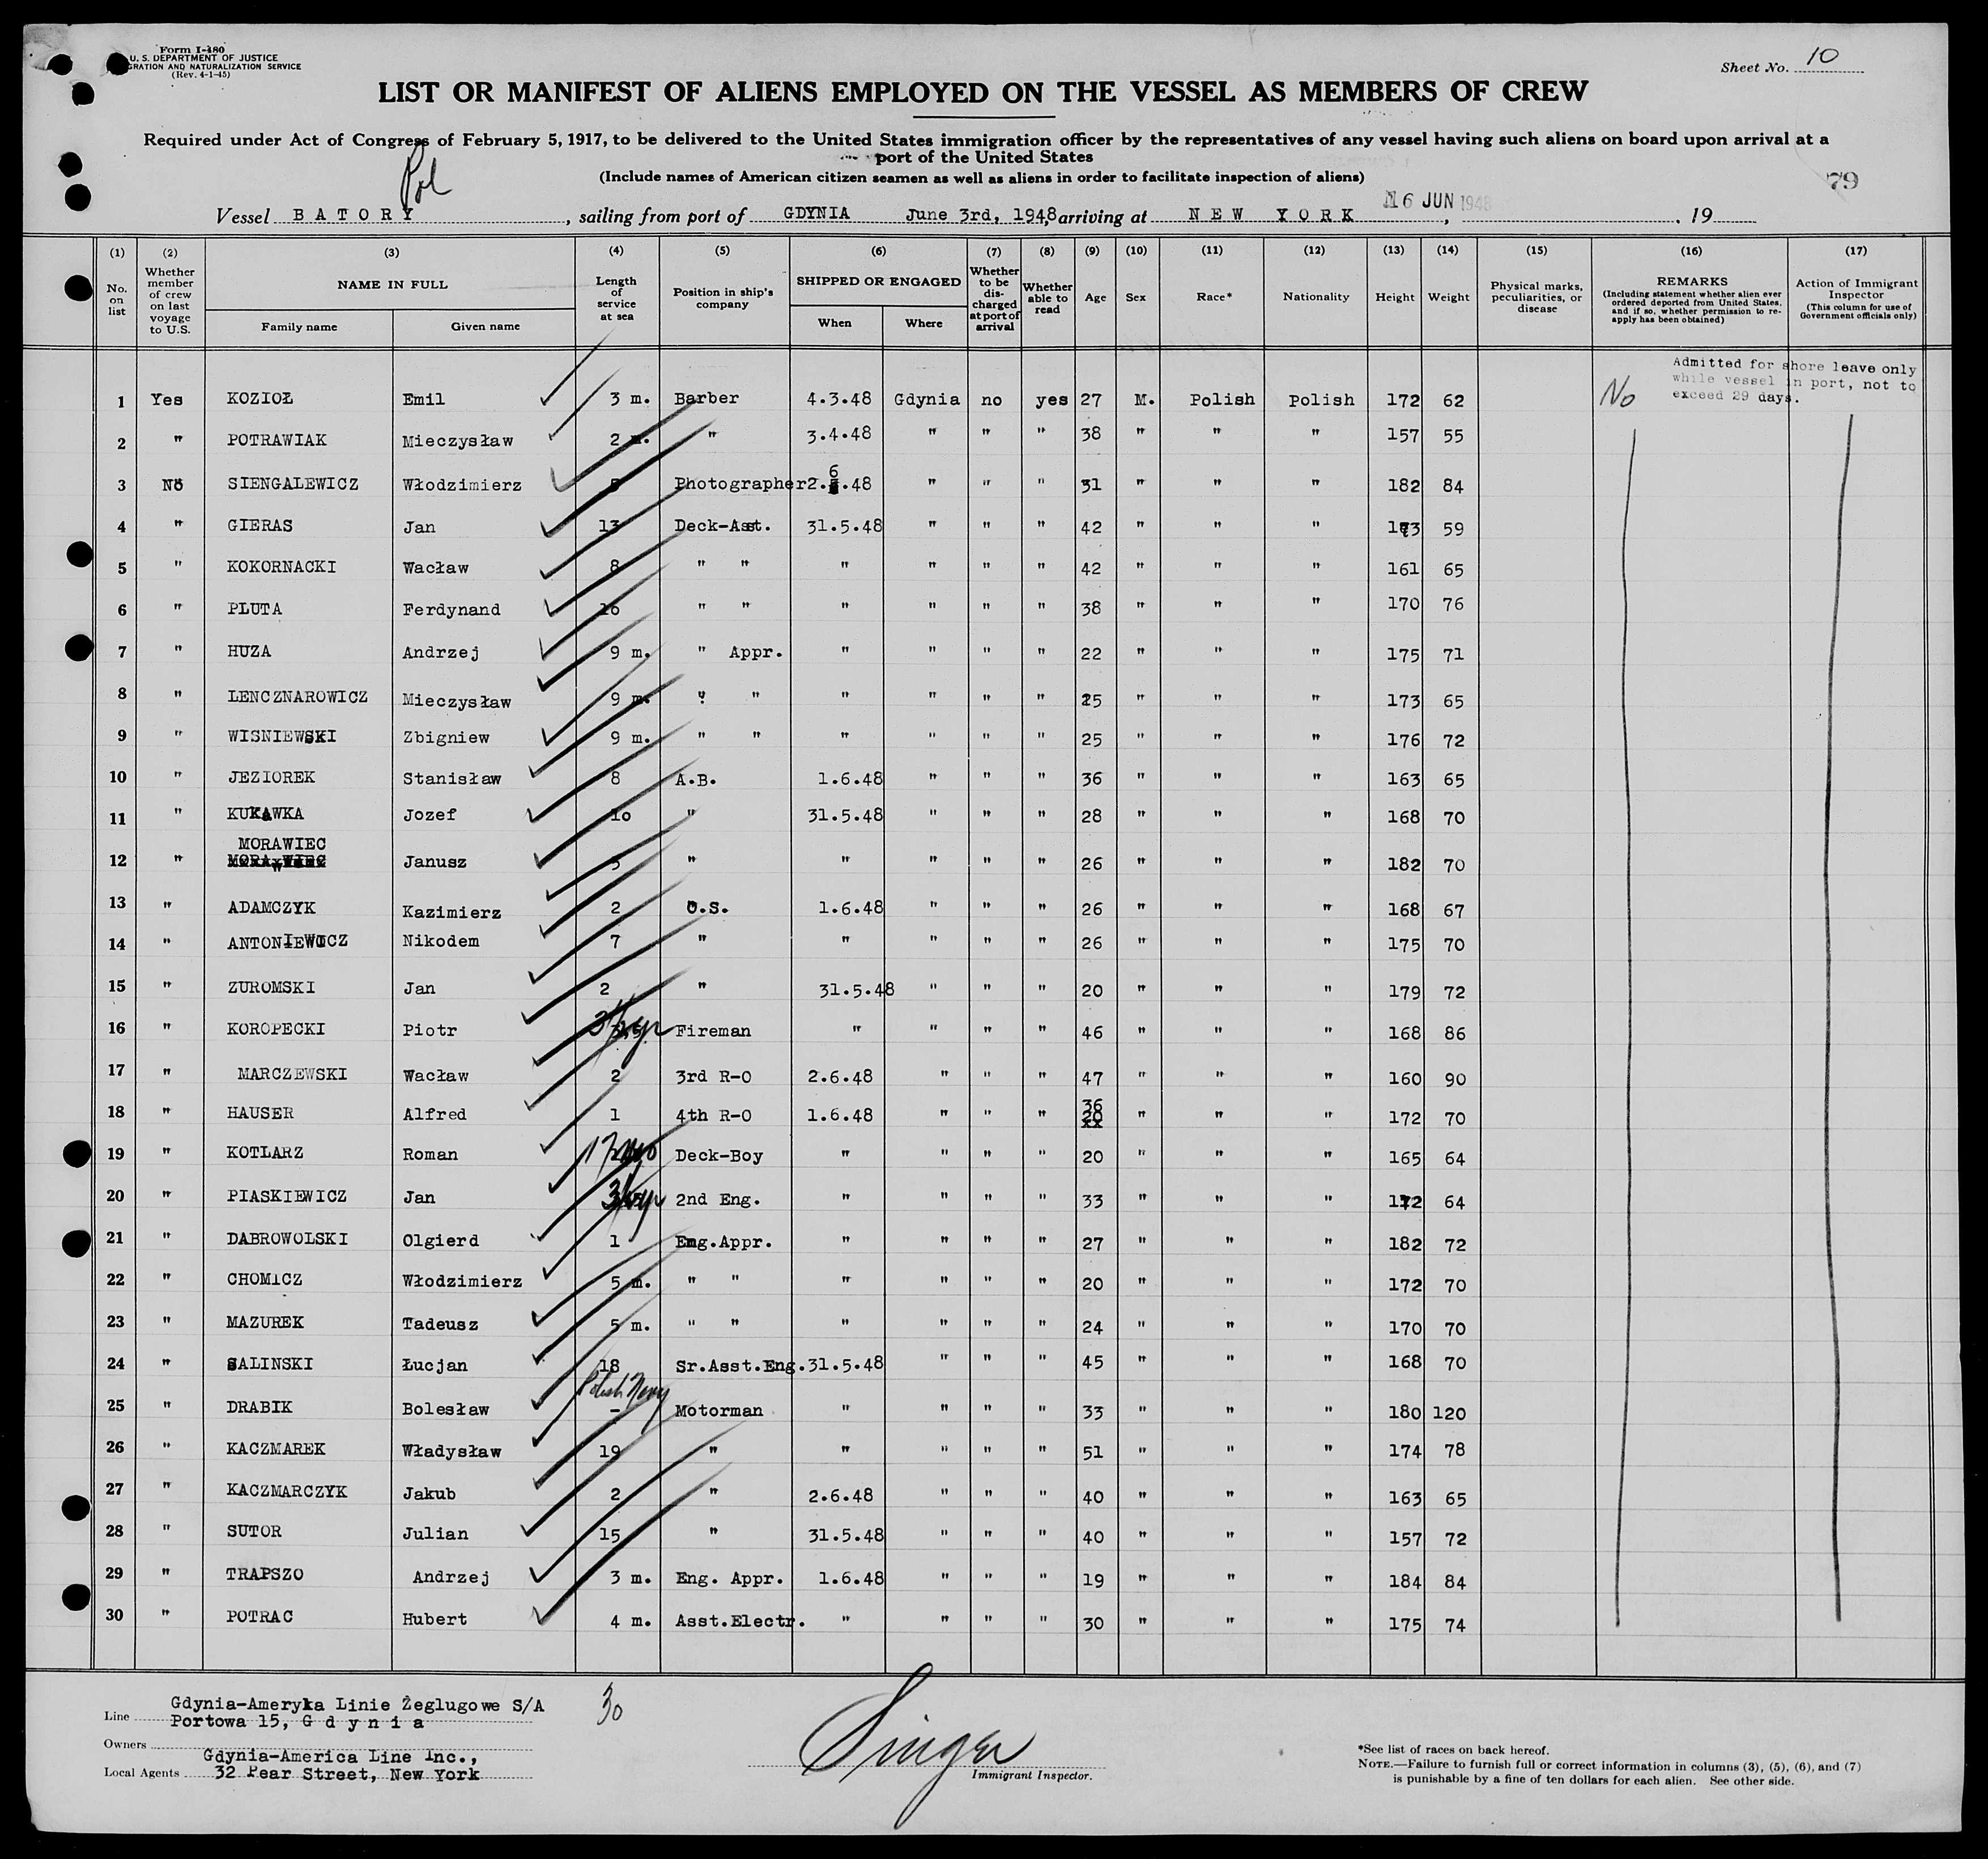 Form I-480
U. S. DEPARTMENT OF JUSTICE
GRATION AND NATURALIZATION SERVICE
(Rev. 4-1-45)
Sheet No. 10
LIST OR MANIFEST OF ALIENS EMPLOYED ON THE VESSEL AS MEMBERS OF CREW
Required under Act of Congress of February 5, 1917, to be delivered to the United States immigration officer by the representatives of any vessel having such aliens on board upon arrival at a
port of the United States
(Include names of American citizen seamen as well as aliens in order to facilitate inspection of aliens)
79
Pol
Vessel BATORY, sailing from port of GDYNIA June 3rd, 1948, arriving at NEW YORK 16 JUN 1948, 19
(1) (2) (3) (4) (5) (6) (7) (8) (9) (10) (11) (12) (13) (14) (15) (16) (17)
No. on list
Whether member of crew on last voyage to U.S.
NAME IN FULL
Family name Given name
Length of service at sea
Position in ship's company
SHIPPED OR ENGAGED
When Where
Whether to be discharged at port of arrival
Whether able to read
Age Sex Race* Nationality Height Weight
Physical marks, peculiarities, or disease
REMARKS
(Including statement whether alien ever ordered deported from United States, and if so, whether permission to reapply has been obtained)
Action of Immigrant Inspector
(This column for use of Government officials only)
Admitted for shore leave only
while vessel in port, not to
exceed 29 days.
1 Yes KOZIOŁ Emil 3 m. Barber 4.3.48 Gdynia no yes 27 M. Polish Polish 172 62 No
2 " POTRAWIAK Mieczysław 2 m. " 3.4.48 " " " 38 " " " 157 55
3 No SIENGALEWICZ Włodzimierz Photographer 2.6.48 " " " 31 " " " 182 84
4 " GIERAS Jan 13 Deck-Asst. 31.5.48 " " " 42 " " " 173 59
5 " KOKORNACKI Wacław 8 " " " " " " 42 " " " 161 65
6 " PLUTA Ferdynand 16 " " " " " " 38 " " " 170 76
7 " HUZA Andrzej 9 m. " Appr. " " " " 22 " " " 175 71
8 " LENCZNAROWICZ Mieczysław 9 m. " " " " " " 25 " " " 173 65
9 " WISNIEWSKI Zbigniew 9 m. " " " " " " 25 " " " 176 72
10 " JEZIOREK Stanisław 8 A.B. 1.6.48 " " " 36 " " " 163 65
11 " KUKAWKA Jozef 10 " 31.5.48 " " " 28 " " " 168 70
12 " MORAWIEC Janusz 5 " " " " " 26 " " " 182 70
13 " ADAMCZYK Kazimierz 2 O.S. 1.6.48 " " " 26 " " " 168 67
14 " ANTONIEWICZ Nikodem 7 " " " " " 26 " " " 175 70
15 " ZUROMSKI Jan 2 " 31.5.48 " " " 20 " " " 179 72
16 " KOROPECKI Piotr Fireman " " " " 46 " " " 168 86
17 " MARCZEWSKI Wacław 2 3rd R-O 2.6.48 " " " 47 " " " 160 90
18 " HAUSER Alfred 1 4th R-O 1.6.48 " " " 36 20 " " " 172 70
19 " KOTLARZ Roman Deck-Boy " " " " 20 " " " 165 64
20 " PIASKIEWICZ Jan 2nd Eng. " " " " 33 " " " 172 64
21 " DABROWOLSKI Olgierd 1 Eng.Appr. " " " " 27 " " " 182 72
22 " CHOMICZ Włodzimierz 5 m. " " " " " " 20 " " " 172 70
23 " MAZUREK Tadeusz 5 m. " " " " " " 24 " " " 170 70
24 " SALINSKI Łucjan 18 Sr.Asst.Eng. 31.5.48 " " " 45 " " " 168 70
Polish Navy
25 " DRABIK Bolesław - Motorman " " " " 33 " " " 180 120
26 " KACZMAREK Władysław 19 " " " " " 51 " " " 174 78
27 " KACZMARCZYK Jakub 2 " 2.6.48 " " " 40 " " " 163 65
28 " SUTOR Julian 15 " 31.5.48 " " " 40 " " " 157 72
29 " TRAPSZO Andrzej 3 m. Eng. Appr. 1.6.48 " " " 19 " " " 184 84
30 " POTRAC Hubert 4 m. Asst.Electr. " " " " 30 " " " 175 74
30
Line Gdynia-Ameryka Linie Żeglugowe S/A
Portowa 15, Gdynia
Owners
Gdynia-America Line Inc.,
Local Agents 32 Pear Street, New York
Singer
Immigrant Inspector.
*See list of races on back hereof.
NOTE.—Failure to furnish full or correct information in columns (3), (5), (6), and (7)
is punishable by a fine of ten dollars for each alien. See other side.